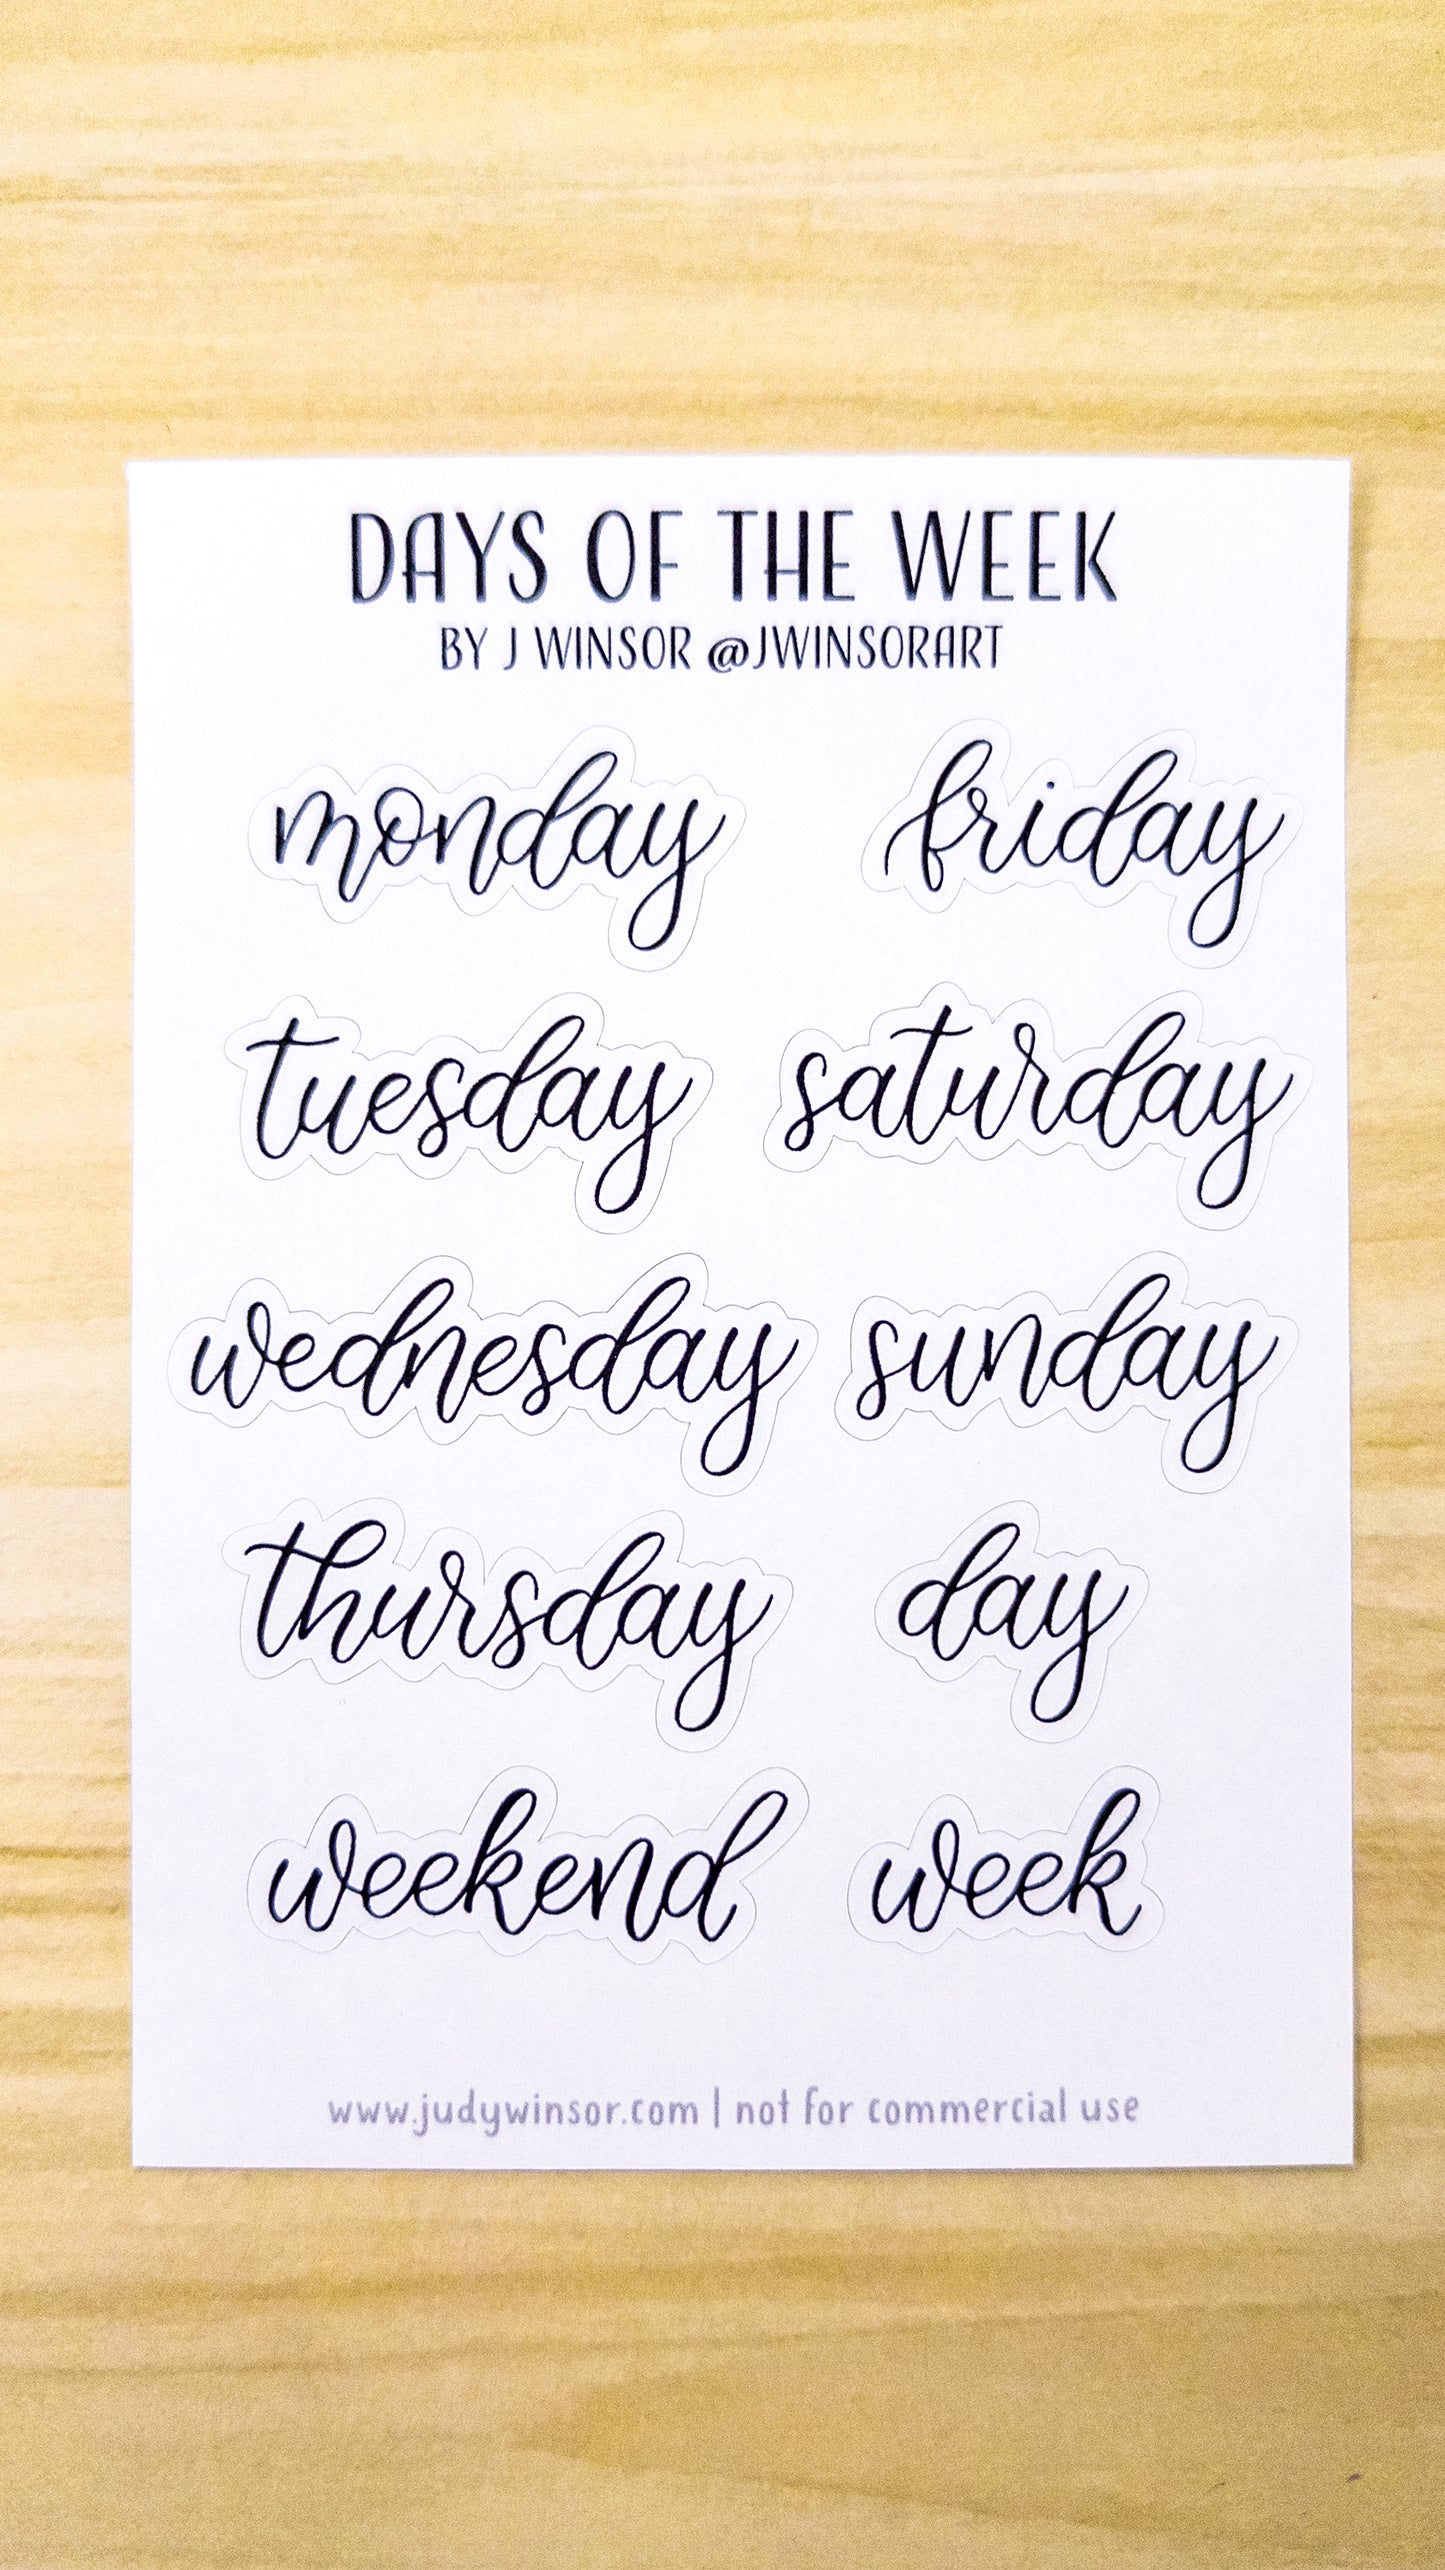 DAYS OF THE WEEK
BY J WINSOR @JWINSORART
monday friday
tuesday saturday
wednesday sunday
thursday day
weekend week
www.judywinsor.com | not for commercial use